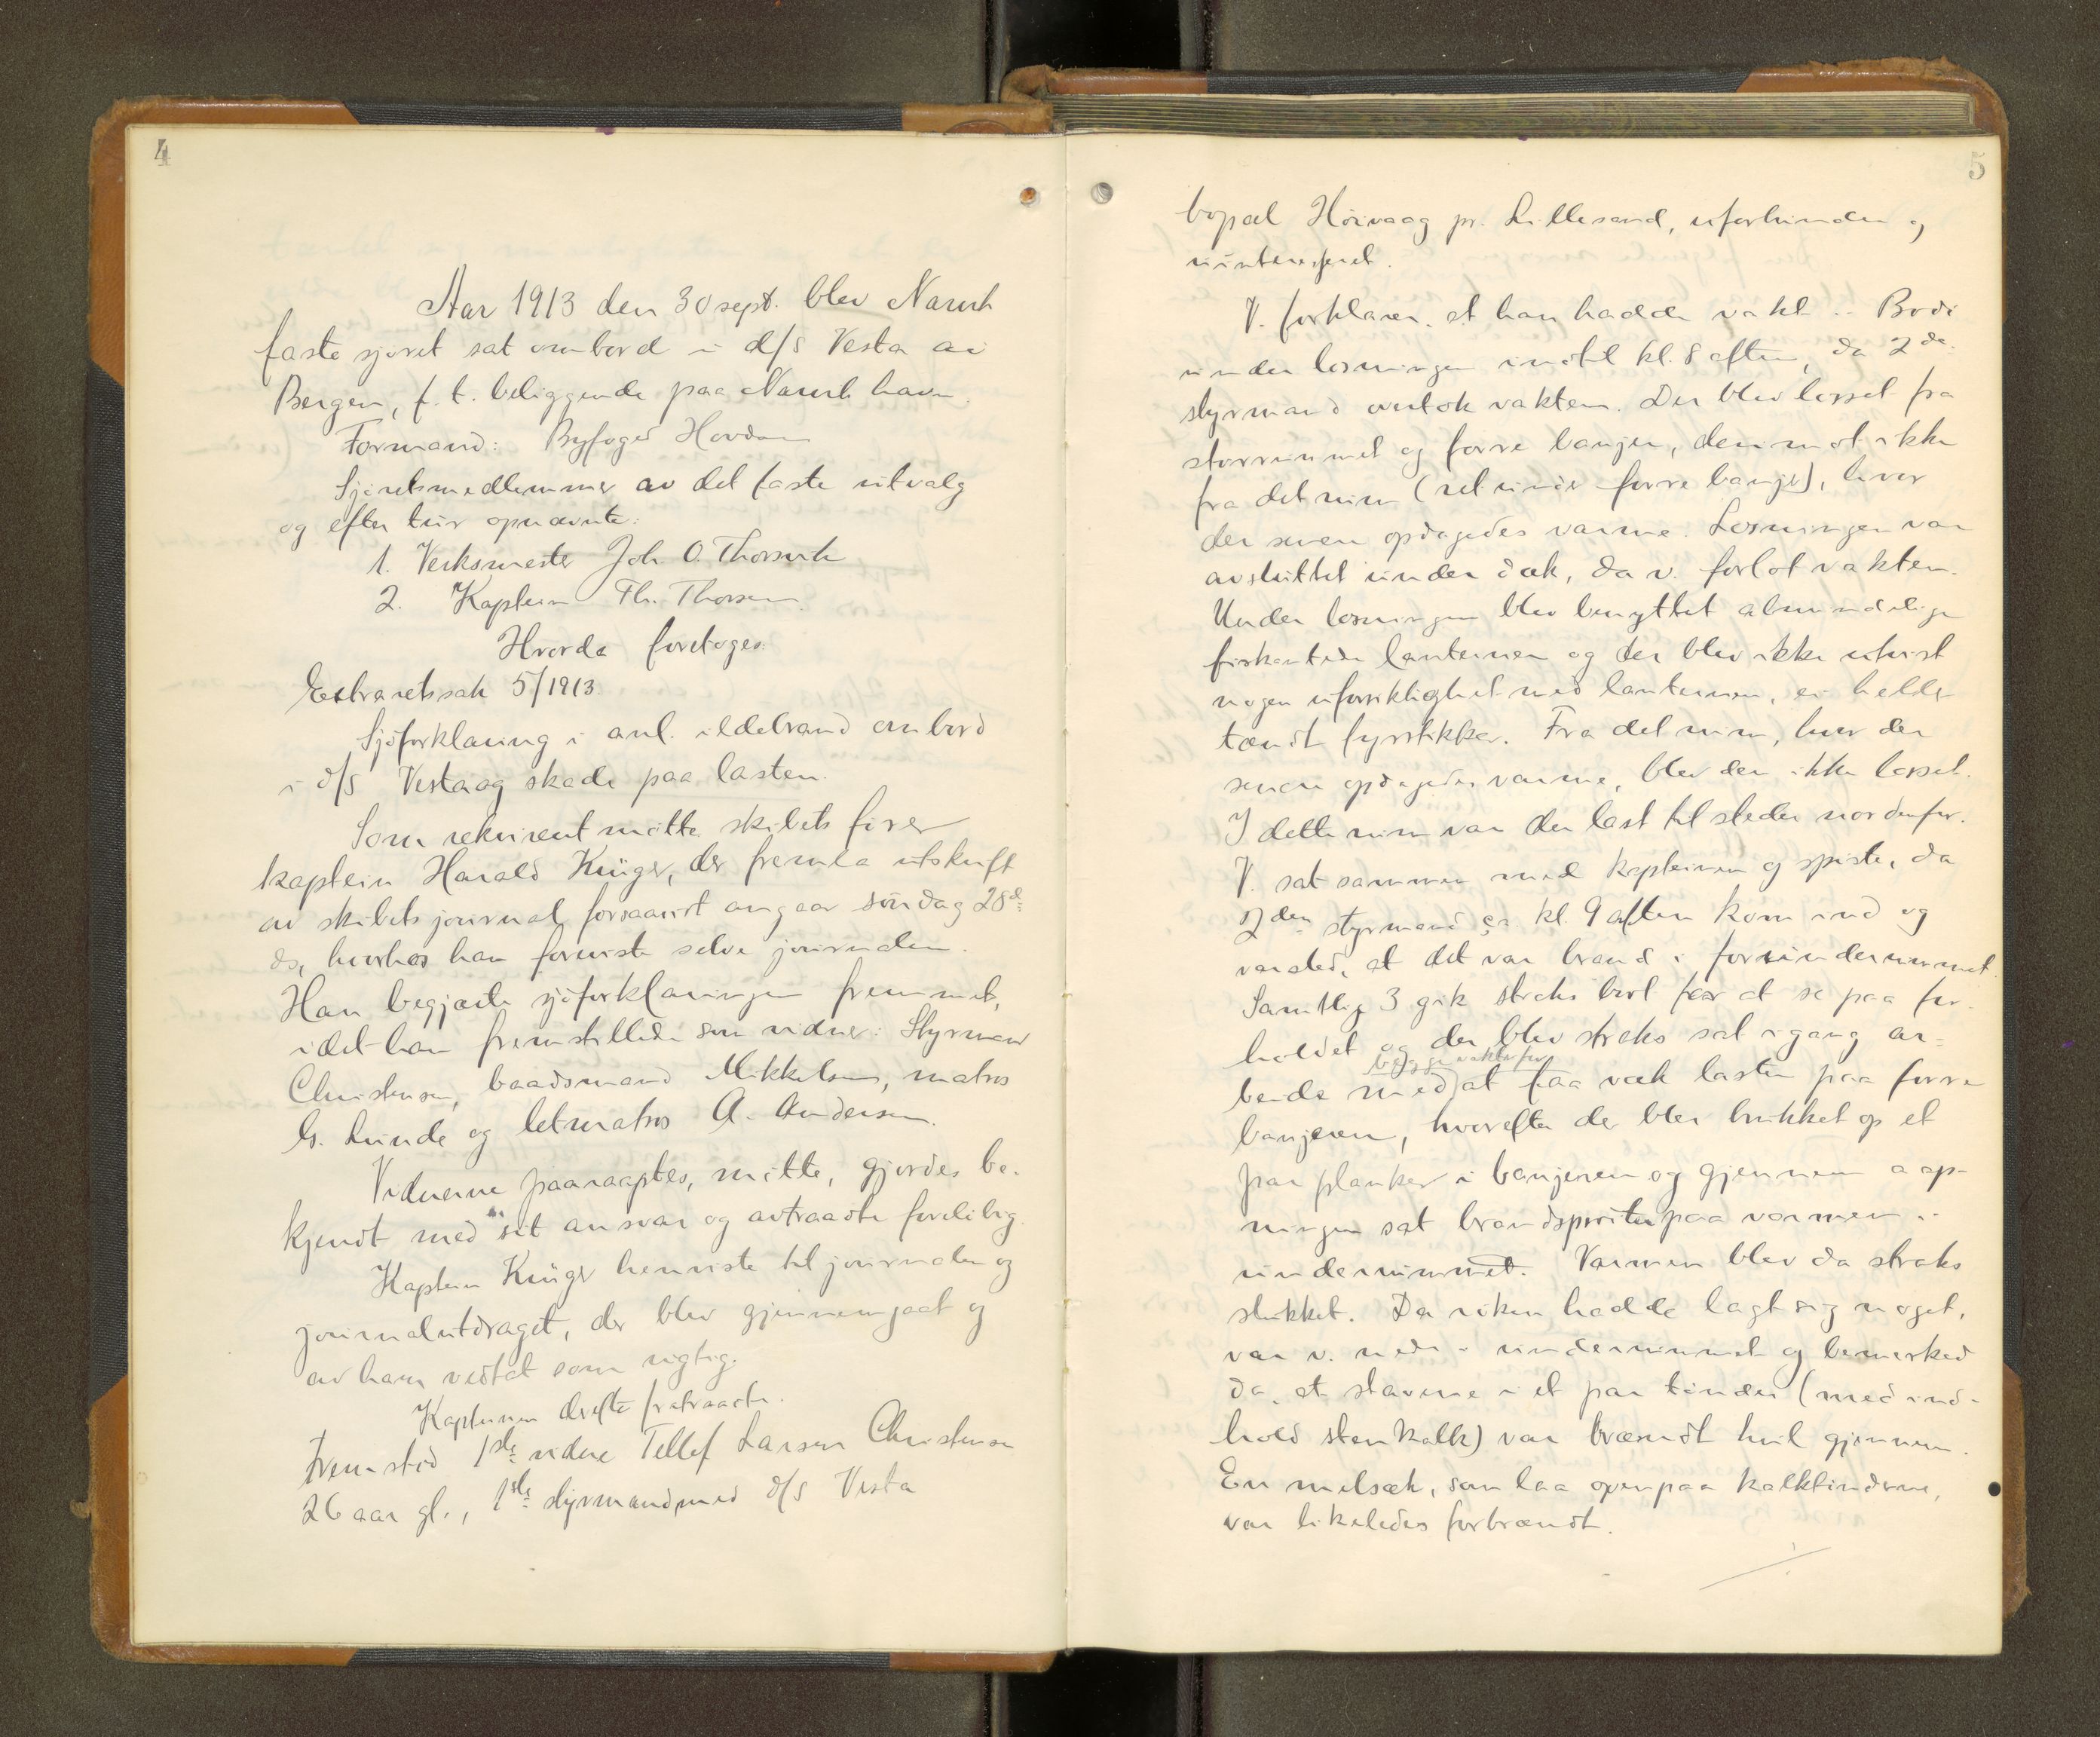 4
Aar 1913 den 30 sept. blev Narvik
faste sjøret sat ombord i d/s Vesta av
Bergen, f. t. beliggende paa Narvik havn.
Formand: Byfoged Hovdan
Sjøretsmedlemmer av det faste utvalg
og efter tur opnævnte:
1. Verksmester Joh. O. Thorsvik
2. Kaptein Th. Thorsen
Hvorda foretoges:
Extraretssak 5/1913
Sjøforklaring i anl. ildebrand ombord
i d/s Vesta og skade paa lasten.
Som rekvirent møtte skibets fører
kaptein Harald Krüger, der fremla utskrift
av skibets journal forsaavidt angaar søndag 28de
ds, hvorhos han foreviste selve journalen.
Han begjærte sjøforklaringen fremmet,
idet han fremstillede som vidner: Styrmand
Christensen, baadsmand Mikkelsen, matros
G. Lunde og letmatros A. Andersen.
Vidnerne paaraaptes, møtte, gjordes be-
kjendt med sit ansvar og avtraadte foreløbig.
Kaptein Krüger henviste til journalen og
journalutdraget, der blev gjennemgaat og
av ham vedtat som rigtig.
Kapteinen derefter fratraadte.
Fremstod 1ste vidne Tellef Larsen Christensen
26 aar gl., 1ste styrmand med d/s Vesta
5
bopæl Høivaag pr. Lillesand, uforhindret og
uinteresseret.
V. forklarer, at han hadde vakt i Bodø
under losningen indtil kl. 8 aften, da 2den
styrmand overtok vakten. Der blev losset fra
storrummet og forre banjer, derimot ikke
fra det rum (ret under forre banjer), hvor
der senere opdagedes varme. Losningen var
avsluttet under dæk, da v. forlot vakten.
Under losningen blev benyttet almindelige
lanterner og der blev ikke utvist
nogen uforsiktighet med lanternen, ei heller
tændt fyrstikker. Fra det rum, hvor der
senere opdagedes varme, blev der ikke losset.
I dette rum var der last til steder nordenfor.
V. sat sammen med kapteinen og spiste, da
2den styrmand ca. kl. 9 aften kom ind og
varsled, at det var brand i forunderrummet.
Samtlige 3 gik straks bort for at se paa for-
holdet og der blev straks sat igang ar-
begge vakter for
beide med at faa væk lasten paa forre
banjeren, hvorefter der blev brukket op et
par planker i banjeren og gjennem aap-
ningen sat brandsprøiten paa varmen i
underrummet. Varmen blev da straks
slukket. Da røken hadde lagt sig noget,
var v. nede i underrummet og bemerked
da, at stavene i et par tønder (med ind-
hold stenkalk) var brændt hul gjennem.
En melsæk, som laa ovenpaa kalktønderne,
var likeledes forbrændt.